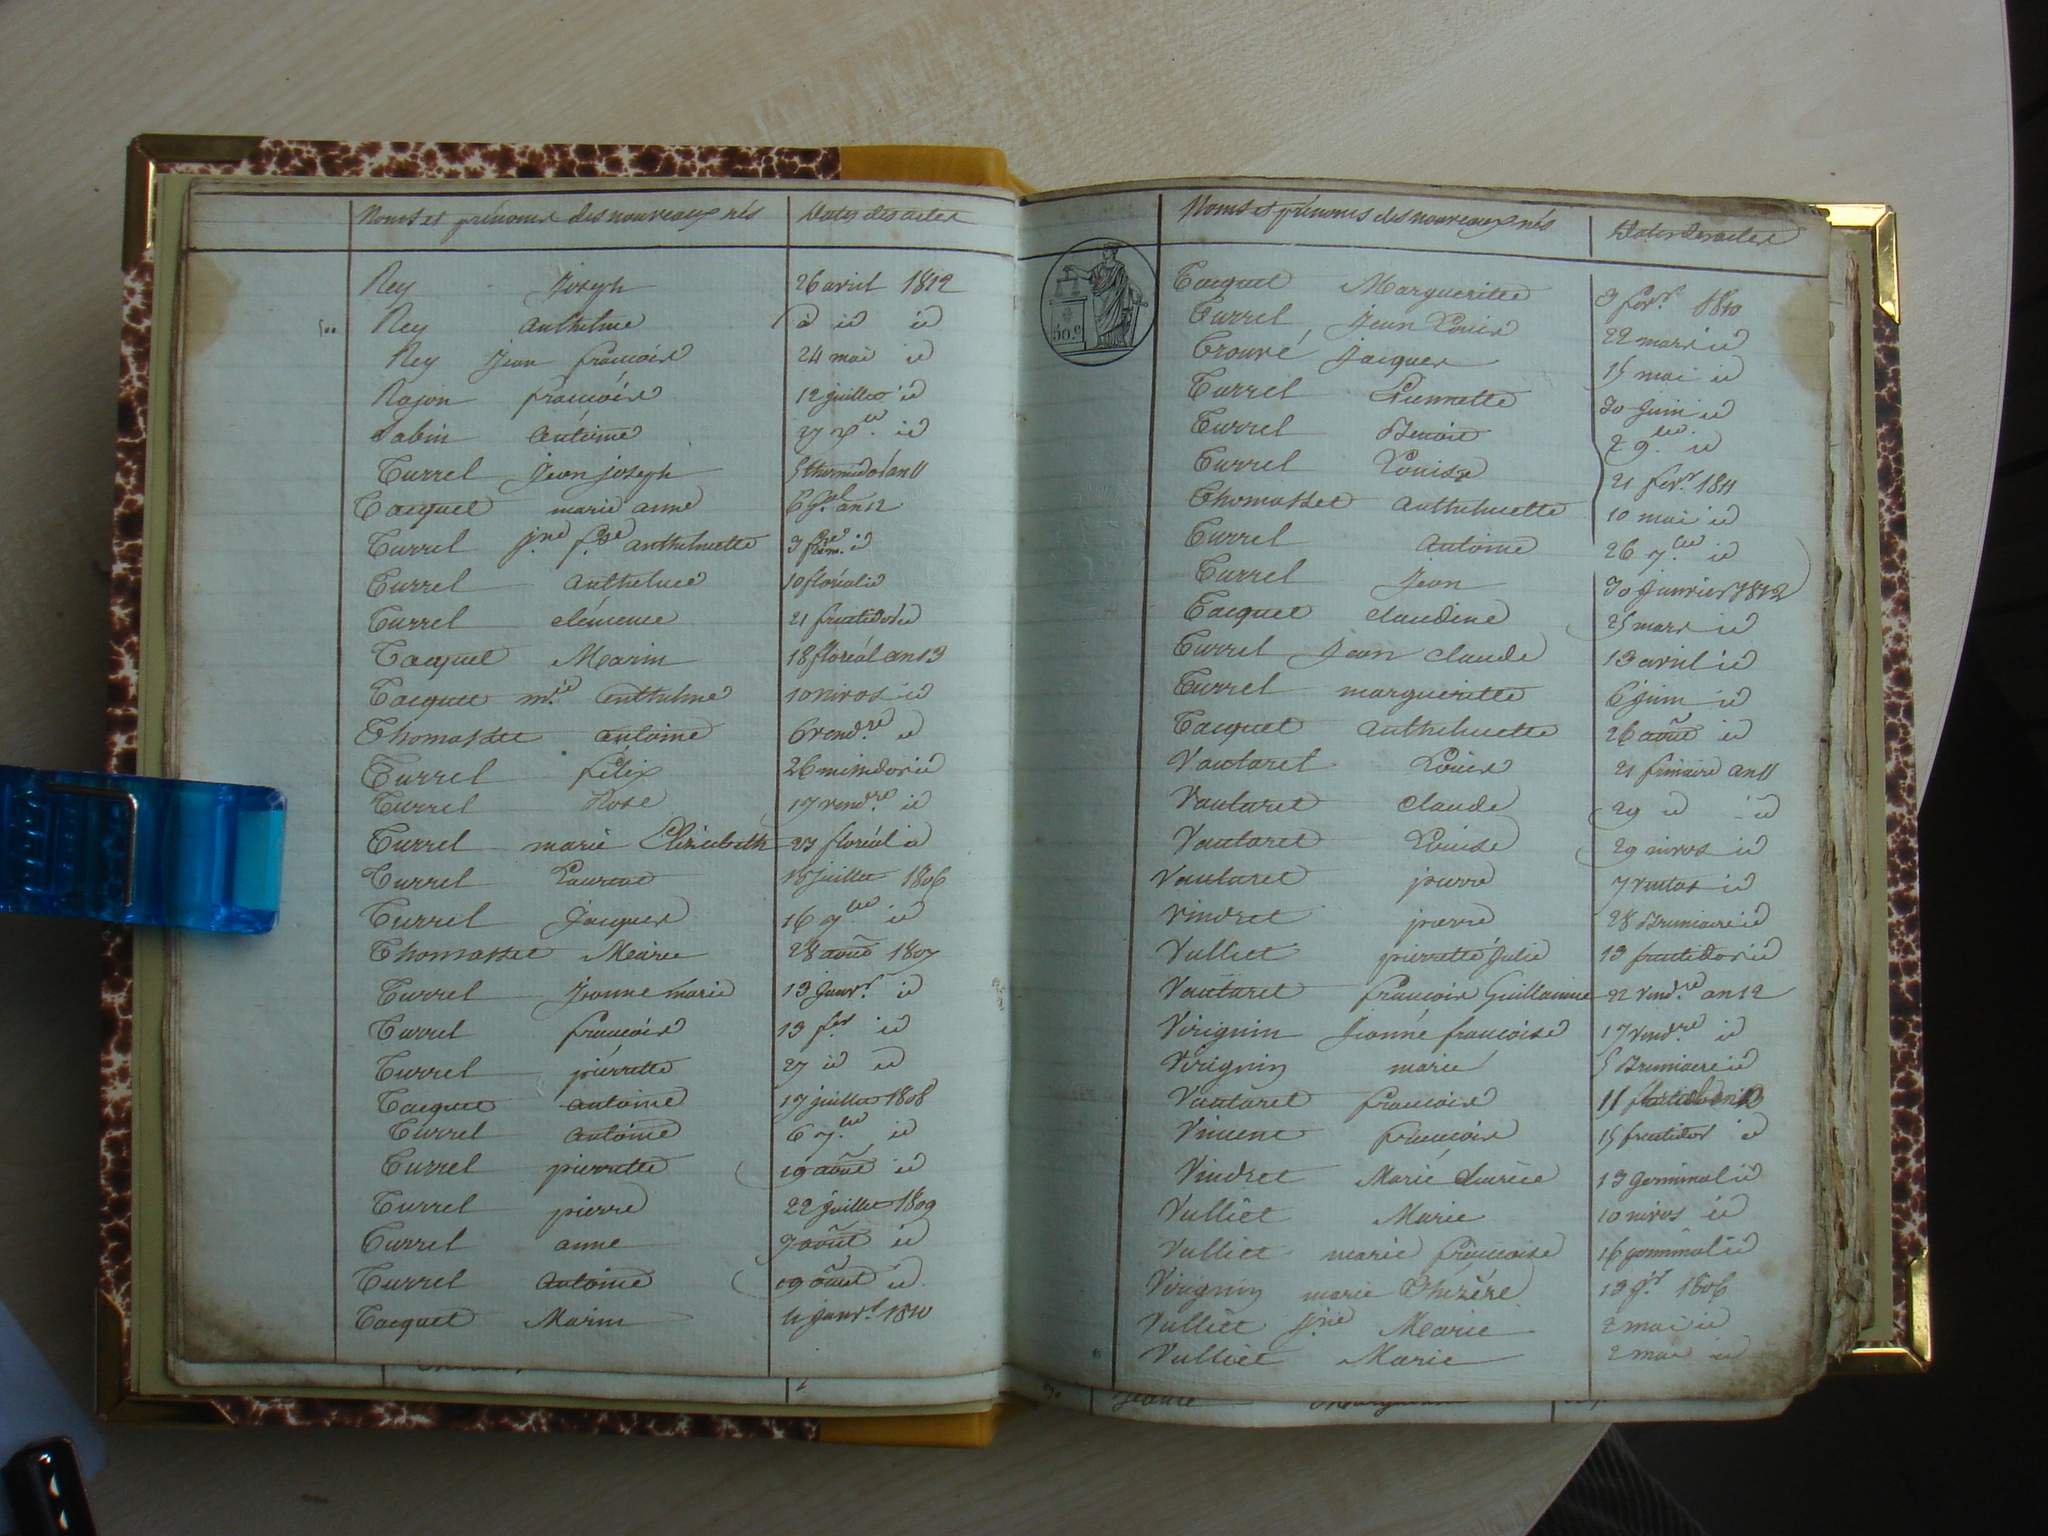 Noms et prénoms des nouveaux nés Dates des actes
Rey Joseph 26 avril 1812
Rey Anthelme d id id
Rey Jean françois 24 mai id
Rajon françois 12 juillet id
Sabin Antoine 27 id
Turrel Jean joseph 5 thermidor an 11
Tacquet marie anne 6 an 12
Turrel jne fse anthelmette 3 id
Turrel anthelme 10 floréal id
Turrel clémence 21 fructidor id
Tacquet Marin 18 floréal an 13
Tacquet me anthelme 10 nivos id
Thomasset antoine 6 vendre id
Turrel félix 26 messidor id
Turrel Rose 17 vendre id
Turrel marie Elizabeth 23 floréal id
Turrel Laurent 15 juillet 1806
Turrel Jacques 16 9bre id
Thomasset Marie 28 août 1807
Turrel Jeanne marie 13 janvr id
Turrel françois 13 fer id
Turrel pierrette 27 id id
Tacquet antoine 17 juillet 1808
Turrel antoine 6 7bre id
Turrel pierrette 19 août id
Turrel pierre 22 juillet 1809
Turrel anne 7 août id
Turrel antoine 19 août id
Tacquet Marin 4 janvr 1810
Noms et prénoms des nouveaux nés Dates des actes
50 c
Tacquet Margueritte 3 fevr 1810
Turrel Jean Louis 22 mars id
Trouvé Jacques 15 mai id
Turrel Pierrette 30 Juin id
Turrel Benoit 2 9bre id
Turrel Louise 21 fevr 1811
Thomasset anthelmette 10 mai id
Turrel antoine 26 7bre id
Turrel Jean 30 Janvier 1812
Tacquet claudine 25 mars id
Turrel Jean claude 13 avril id
Turrel margueritte 6 juin id
Tacquet anthelmette 26 août id
Vautaret Louis 21 frimaire an 11
Vautaret claude 29 id id
Vautaret Louise 29 nivos id
Vautaret pierre 7 ventos id
Vindret pierre 28 Brumaire id
Vulliet pierrette Julie 13 fructidor id
Vautaret françois Guillaume 22 vendre an 12
Virignin Jeanne françoise 17 vendre id
Virignin marie 5 Brumaire id
Vautaret françois 11
Vincent françois 15 fructidor id
Vindret Marie 13 Germinal id
Vulliet Marie 10 nivos id
Vulliet marie françoise 16 germinal id
Virignin marie Thérèse 13 1806
Vulliet jne Marie 2 mai id
Vulliet Marie 2 mai id